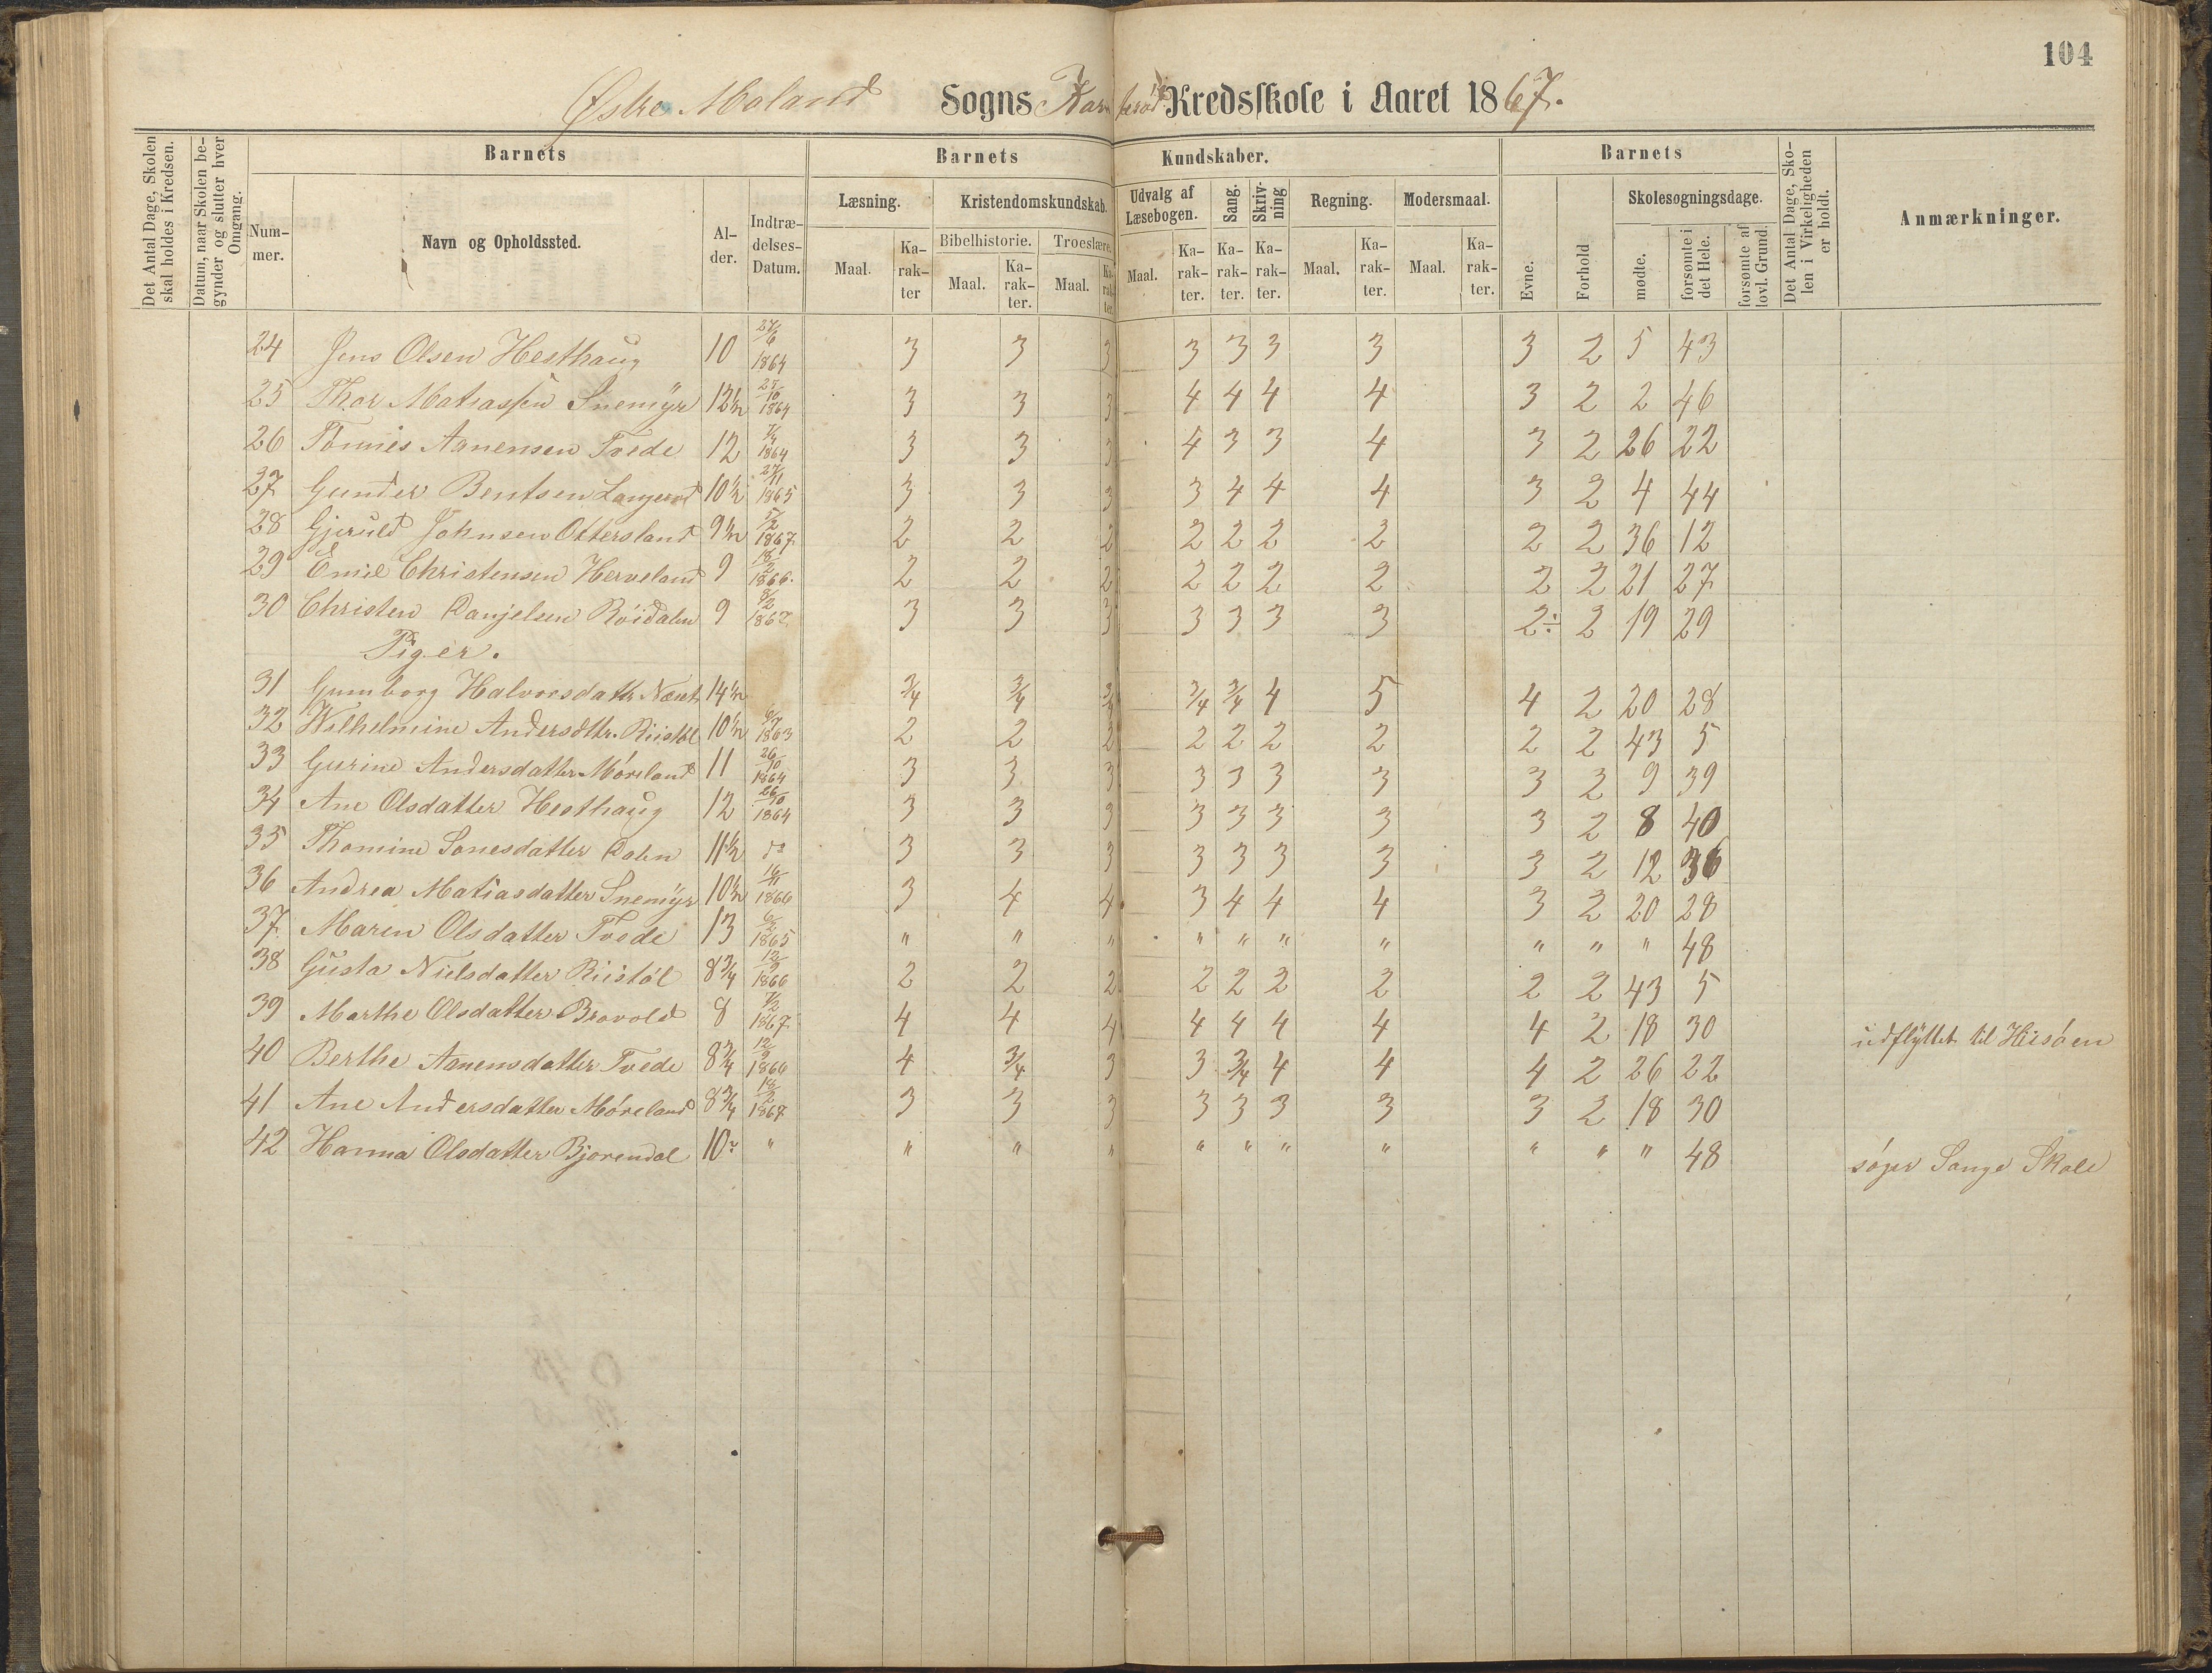 104
Østre Moland Sogns Kredsskole i Aaret 1867.
Det Antal Dage, Skolen skal holdes i Kredsen.
Datum, naar Skolen begynder og slutter hver Omgang.
Barnets
Barnets Kundskaber.
Barnets
Det Antal Dage, Skolen i Virkeligheden er holdt.
Anmærkninger.
Num-mer.
Navn og Opholdssted.
Al-der.
Indtræ-delses-Datum.
Læsning.
Kristendomskundskab.
Udvalg af Læsebogen.
Sang.
Skriv-ning
Regning.
Modersmaal.
Evne.
Forhold
Skolesøgningsdage.
Bibelhistorie.
Troeslære.
Maal. Ka-rak-ter Maal. Ka-rak-ter. Maal. Ka-rak-ter. Maal. Ka-rak-ter. Ka-rak-ter. Ka-rak-ter. Maal. Ka-rak-ter. Maal. Ka-rak-ter.
mødte.
forsømte i det Hele.
forsømte af lovl. Grund.
24 Jens Olsen Hesthaug 10 27/6 1864 3 3 3 3 3 3 3 3 2 5 43
25 Thor Matiassen Snemyr 12 1/2 27/10 1864 3 3 3 4 4 4 4 3 2 2 46
26 Tønnes Aanensen Tvede 12 1864 3 3 3 4 3 3 4 3 2 26 22
27 Gunder Bentsen Langerød 10 1/2 27/11 1865 3 3 3 3 4 4 4 3 2 4 44
28 Gjeruld Johnsen Ottersland 9 1/2 5/2 1867 2 2 2 2 2 2 2 2 2 36 12
29 Emil Christensen Herveland 9 18/2 1866. 2 2 2 2 2 2 2 2 2 21 27
30 Christen Danjelsen Röidalen 9 8/2 1867 3 3 3 3 3 3 3 2÷ 2 19 29
Piger.
31 Gumborg Halvorsdattr 14 1/2 3/4 3/4 3/4 3/4 3/4 4 5 4 2 20 28
32 Wilhelmine Andersdttr. Riistöl 10 1/2 6/7 1863 2 2 2 2 2 2 2 2 2 43 5
33 Gurine Andersdatter Möreland 11 26/10 1864 3 3 3 3 3 3 3 3 2 9 39
34 Ane Olsdatter Hesthaug 12 26/10 1864 3 3 3 3 3 3 3 3 2 8 40
35 Thomine Sonesdatter Dalen 11 1/2 do 3 3 3 3 3 3 3 3 2 12 36
36 Andrea Matiasdatter Snemyr 10 1/2 1866 3 4 4 3 4 4 4 3 2 20 28
37 Maren Olsdatter Tvede 13 6/2 1865 " " " " " " " " " " 48
38 Gusta Nielsdatter Riistöl 8 3/4 12/9 1866 2 2 2 2 2 2 2 2 2 43 5
39 Marthe Olsdatter Brovold 8 7/2 1867 4 4 4 4 4 4 4 4 2 18 30 udflyttet til Hisöen
40 Berthe Aanensdatter Tvede 8 3/4 12/9 1866 4 3/4 3 3 3/4 4 4 4 2 26 22
41 Ane Andersdatter Möreland 8 3/4 18/2 1867 3 3 3 3 3 3 3 3 2 18 30
42 Hanna Olsdatter Bjorendal 10 " " " " " " " " " " " 48 söger Songe Skole